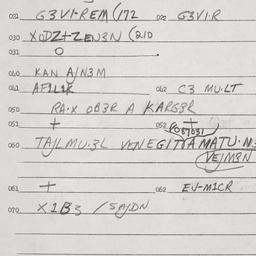 021 G3V1·REM (172 022 G3V1·R
030 X0DZ+ZEN3N (210
031 O
040 KAN A/N3M
041 042 C3 MU·LT
050 PA·X OB3R A KARG3R
051 + 052 +
060 TAJLMU·3L VENEGITTAMATU·N
VEJM3N
061 + 062 EJ-M1CR
070 X1B3 /SAJDN